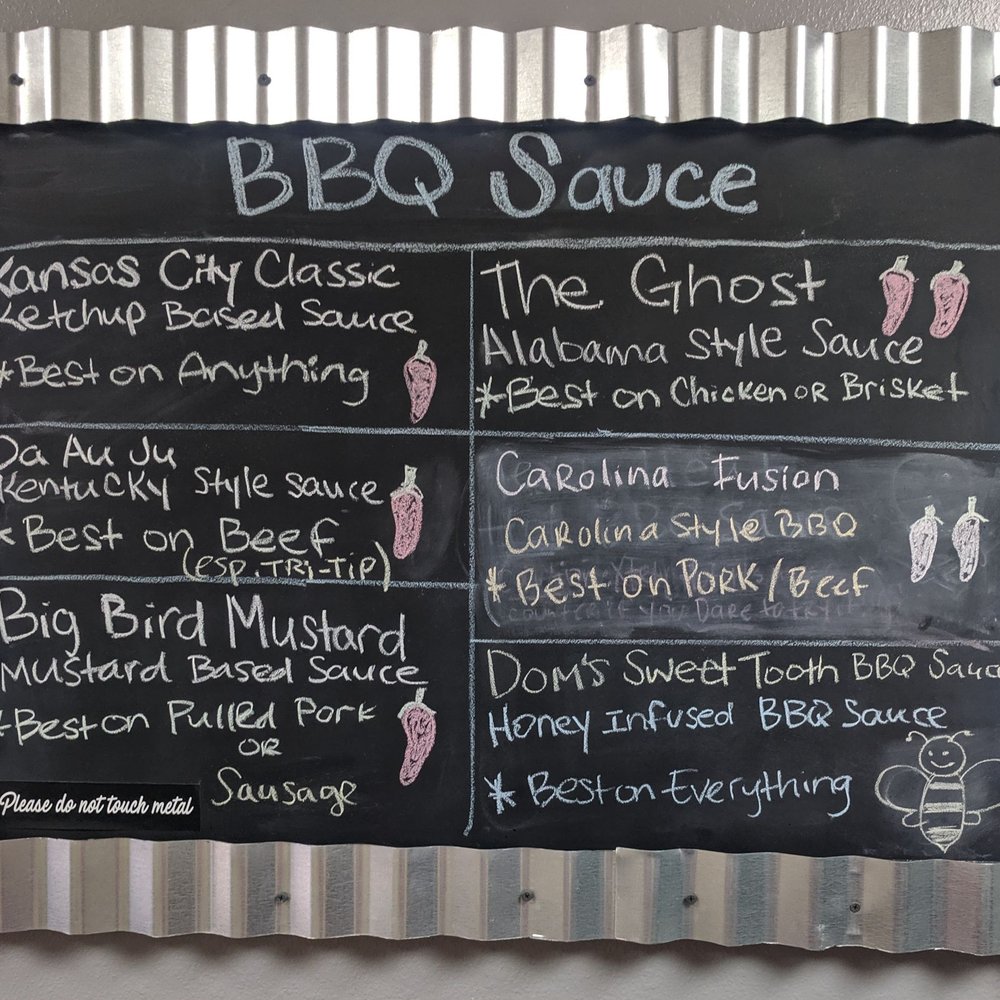 BBQ Sauce
Kansas City Classic
Ketchup Based Sauce
*Best on Anything
Da Au Ju
Kentucky Style sauce
*Best on Beef
(esp. Tri-Tip)
Big Bird Mustard
Mustard Based Sauce
*Best on Pulled Pork
OR
Sausage
Please do not touch metal
The Ghost
Alabama Style Sauce
*Best on Chicken OR Brisket
Carolina Fusion
Carolina Style BBQ
*Best on Pork/Beef
Dom's Sweet Tooth BBQ Sauc
Honey Infused BBQ Sauce
*Best on Everything